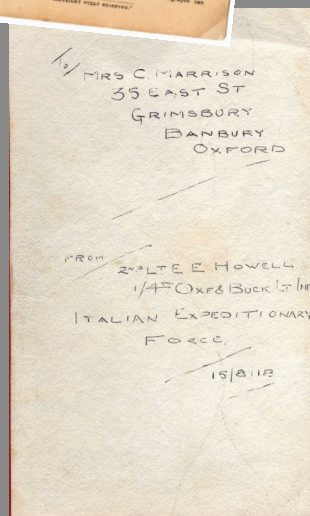 "COPYRIGHT FULLY RESERVED."
To/
MRS C. MARRISON
35 EAST ST
GRIMSBURY
BANBURY
OXFORD
FROM
2ND LTE E. HOWELL
1/4TH OXF & BUCK LT INF
ITALIAN EXPEDITIONARY
FORCE.
15/8/18